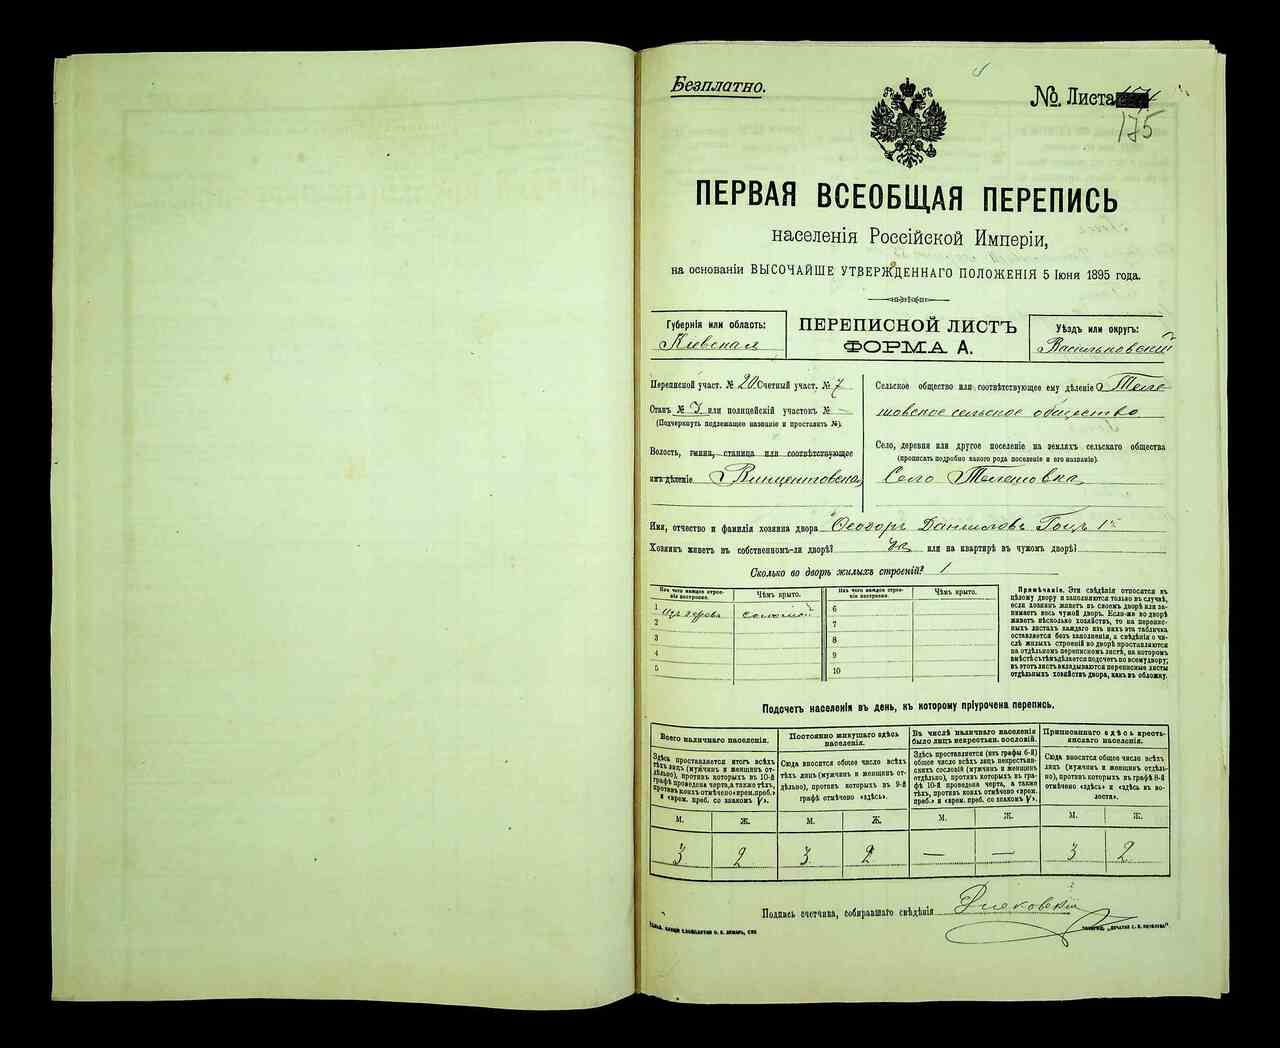 Безплатно.
№. Листа
175
ПЕРВАЯ ВСЕОБЩАЯ ПЕРЕПИСЬ
населенія Россійской Имперіи,
на основаніи ВЫСОЧАЙШЕ УТВЕРЖДЕННАГО ПОЛОЖЕНІЯ 5 Іюня 1895 года.
Губернія или область:
Кіевская
ПЕРЕПИСНОЙ ЛИСТЪ
ФОРМА А.
Уѣздъ или округъ:
Васильковскій
Переписной участ. № 20 Счетный участ. № 7
Станъ № 3, или полицейскій участокъ № –
(Подчеркнуть подлежащее названіе и проставить №).
Волость, гмина, станица или соотвѣтствующее
имъ дѣленіе Винцентовская
Сельское общество или соотвѣтствующее ему дѣленіе Теле-
шовское сельское общество
Село, деревня или другое поселеніе на земляхъ сельскаго общества
(прописать подробно какого рода поселеніе и его названіе).
Село Телешовка
Имя, отчество и фамилія хозяина двора Ѳеодоръ Даниловъ Гоцъ 1й
Хозяинъ живетъ въ собственномъ-ли дворѣ? да или на квартирѣ въ чужомъ дворѣ?
Сколько во дворѣ жилыхъ строеній? 1
Изъ чего каждое строе-
ніе построено.
Чѣмъ крыто.
Изъ чего каждое строе-
ніе построено.
Чѣмъ крыто.
1 изъ дерева соломой
2
3
4
5
6
7
8
9
10
Примѣчаніе. Эти свѣдѣнія относятся къ
цѣлому двору и заполняются только въ случаѣ,
если хозяинъ живетъ въ своемъ дворѣ или за-
нимаетъ весь чужой дворъ. Если-же во дворѣ
живетъ нѣсколько хозяйствъ, то на перепис-
ныхъ листахъ каждаго изъ нихъ эта табличка
оставляется безъ заполненія, а свѣдѣнія о чи-
слѣ жилыхъ строеній во дворѣ проставляются
на отдѣльномъ переписномъ листѣ, на которомъ
вмѣстѣ съ тѣмъ дѣлается подсчетъ по всему двору;
въ этотъ листъ вкладываются переписные листы
отдѣльныхъ хозяйствъ двора, какъ въ обложку.
Подсчетъ населенія въ день, къ которому пріурочена перепись.
Всего наличнаго населенія.
Здѣсь проставляется итогъ всѣхъ
тѣхъ лицъ (мужчинъ и женщинъ от-
дѣльно), противъ которыхъ въ 10-й
графѣ проведена черта, а также тѣхъ,
противъ коихъ отмѣчено «врем. преб.»
и «врем. преб. со знакомъ V».
Постоянно живущаго здѣсь
населенія.
Сюда вносится общее число всѣхъ
тѣхъ лицъ (мужчинъ и женщинъ от-
дѣльно), противъ которыхъ въ 9-й
графѣ отмѣчено «здѣсь».
Въ числѣ наличнаго населенія
было лицъ некрестьян. сословій.
Здѣсь проставляется (изъ графы 6-й)
общее число всѣхъ лицъ некрестьян-
скихъ сословій (мужчинъ и женщинъ
отдѣльно), противъ которыхъ въ гра-
фѣ 10-й проведена черта, а также
тѣхъ, противъ коихъ отмѣчено «врем.
преб.» и «врем. преб. со знакомъ V».
Приписаннаго здѣсь кресть-
янскаго населенія.
Сюда вносится общее число всѣхъ
лицъ (мужчинъ и женщинъ отдѣль-
но), противъ которыхъ въ графѣ 8-й
отмѣчено «здѣсь» и «здѣсь въ во-
лости».
М. Ж. М. Ж. М. Ж. М. Ж.
3 2 3 2 — — 3 2
Подпись счетчика, собиравшаго свѣдѣнія